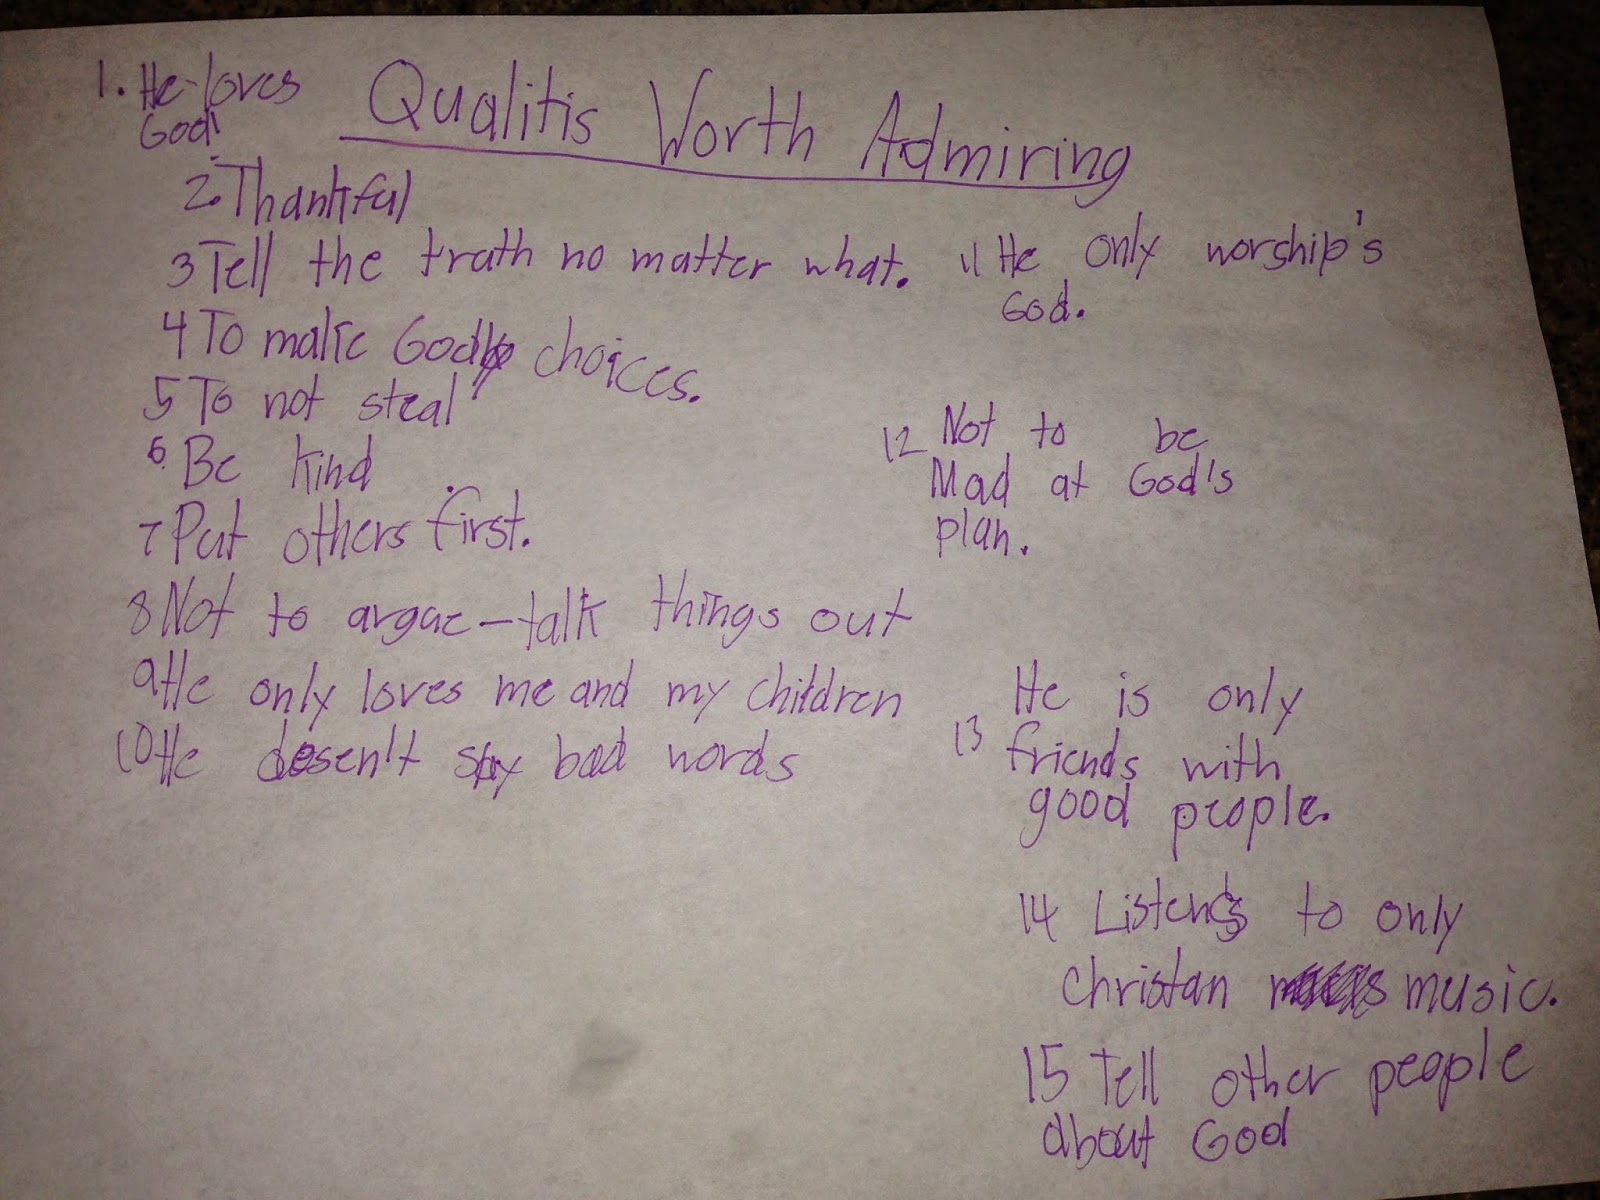 Qualitis Worth Admiring
1. He loves
God!
2. Thankful
3 Tell the truth no matter what.
4 To make Godly choices.
5 To not steal
6. Be kind
7 Put others first.
8 Not to argue - talk things out
9 He only loves me and my children
10 He dosen't say bad words
11 He only worship's
God.
12 Not to be
Mad at God's
plan.
13 He is only
friends with
good people.
14 Listens to only
Christan music.
15 Tell other people
about God